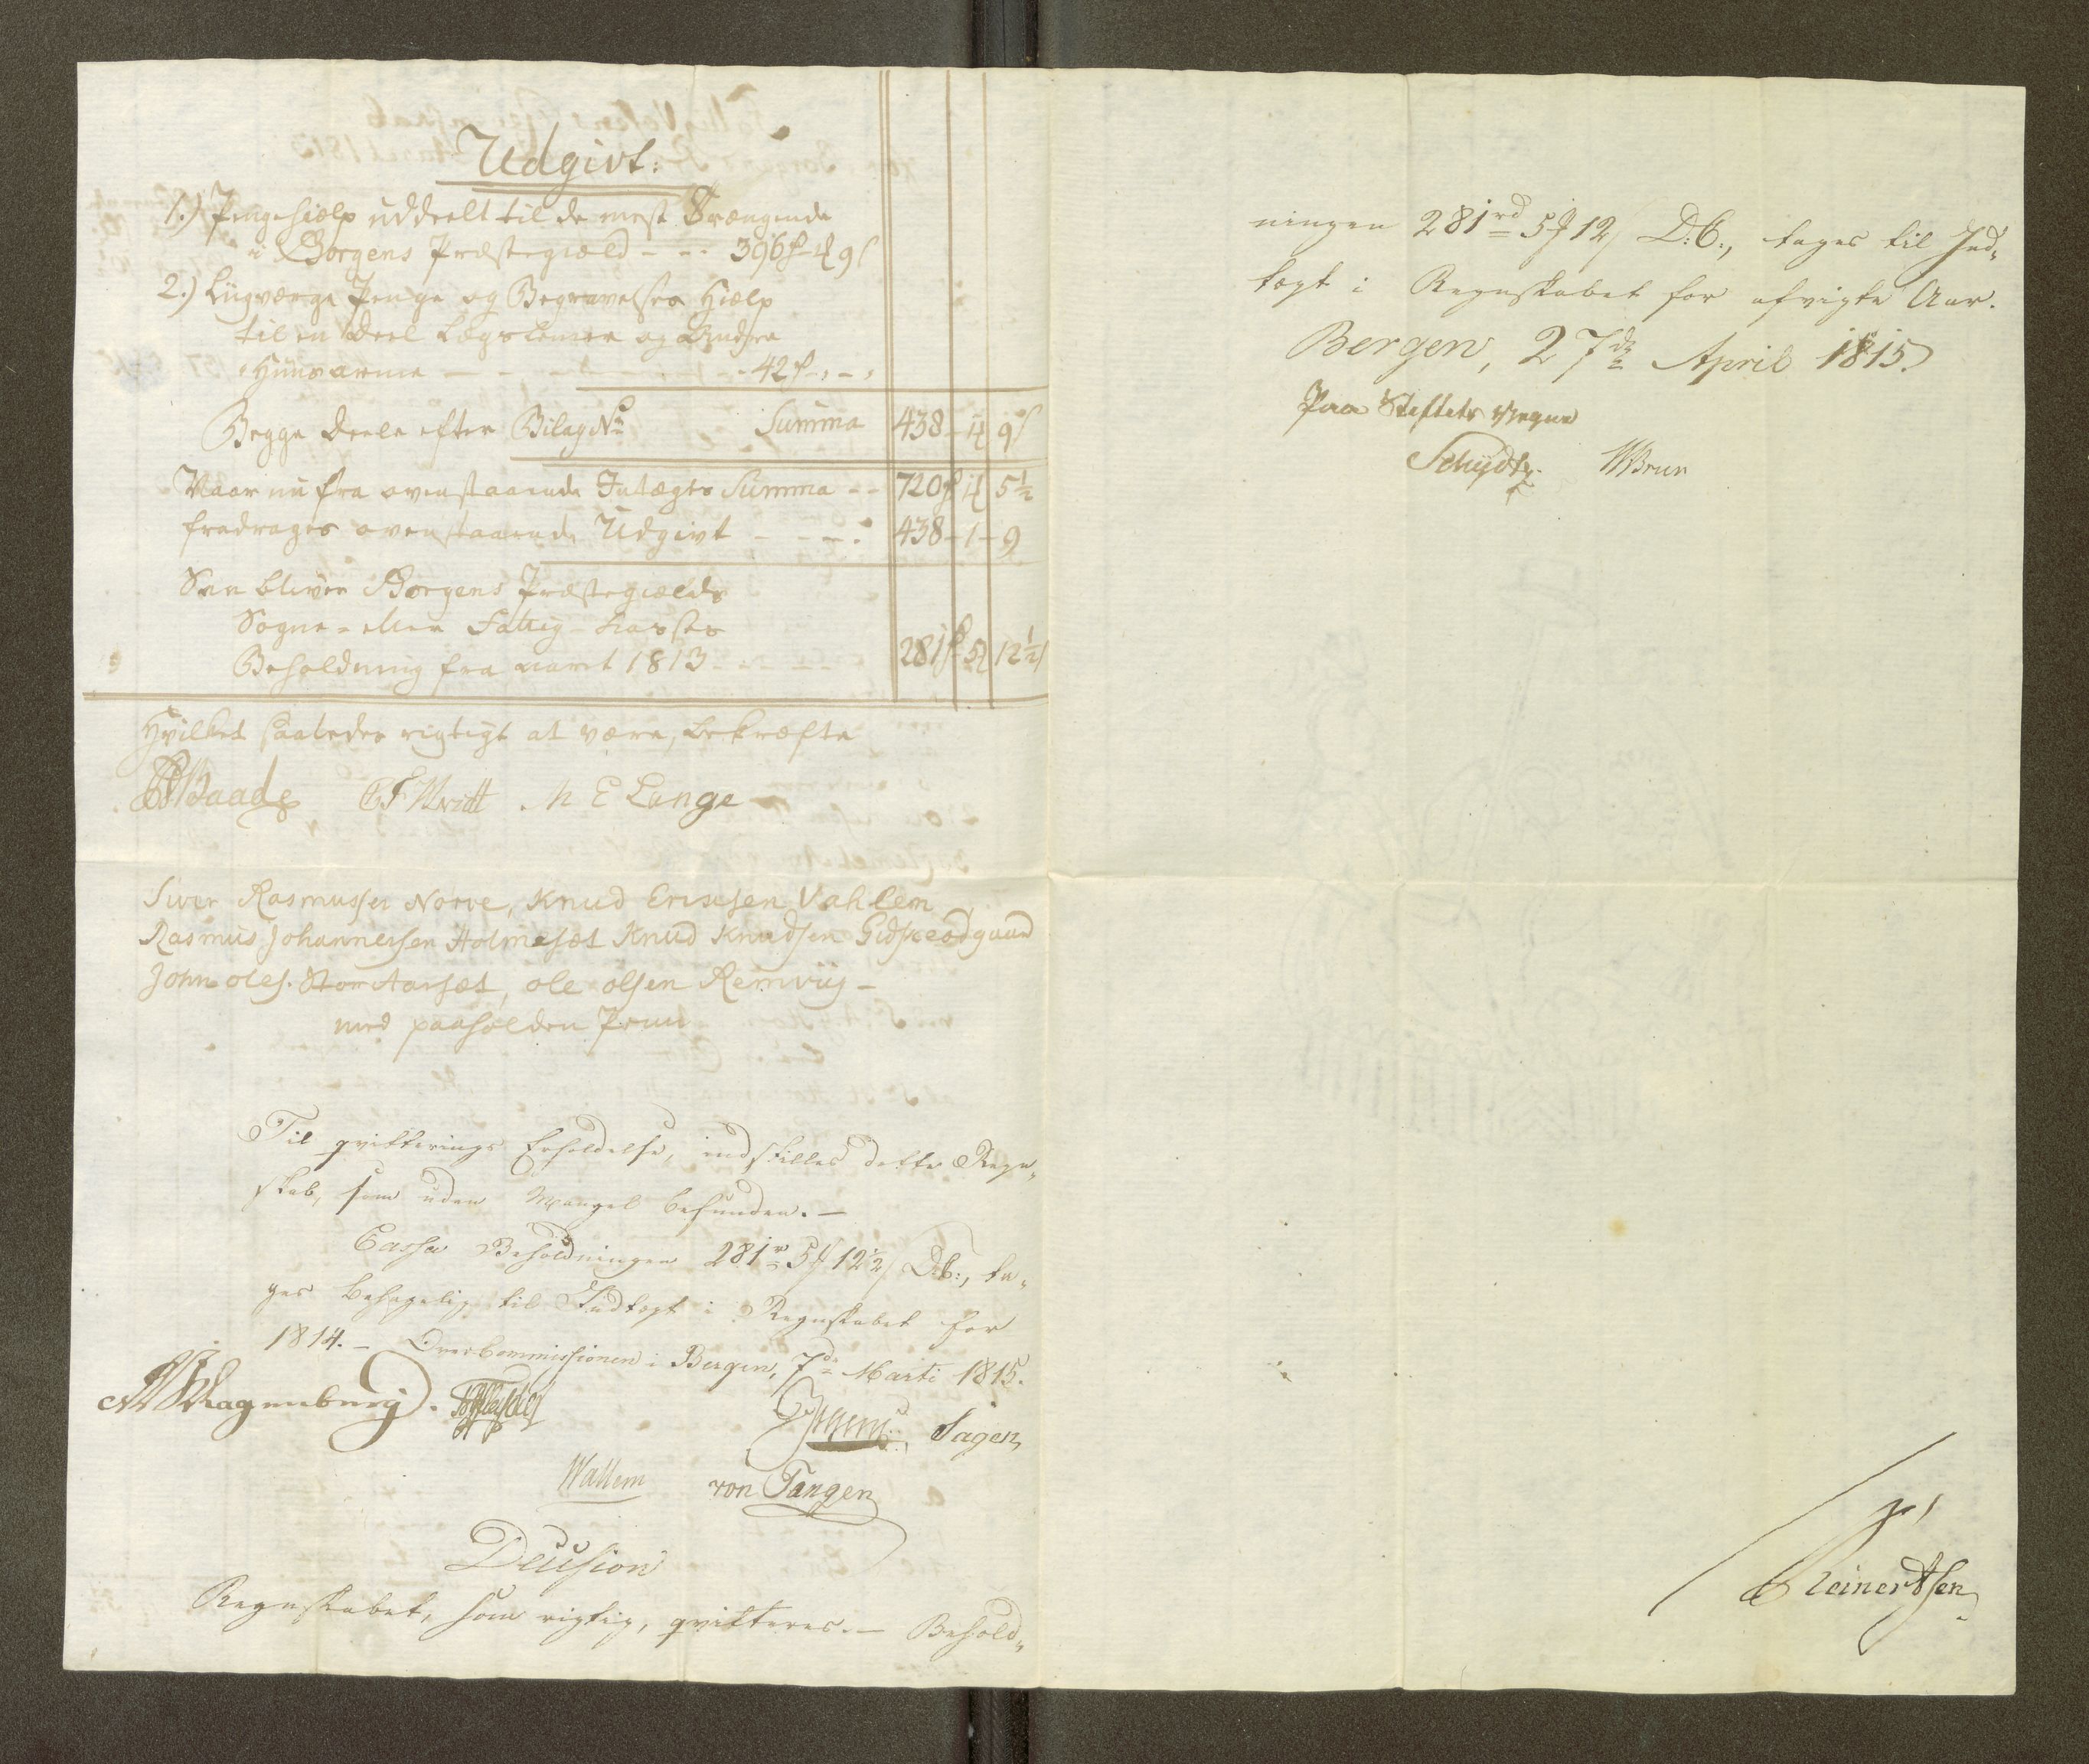 Udgivt:
1.) Pengehielp uddeelt til de mest Trængende
i Borgens Præstegield - - - 396 - 4 9
2.) Liigværge Penge og Begravelses Hielp
til en Deel Lægslemer og Andre
Huusarme - - - 42 - " - "
Begge Deele efter Bilag No Summa 438 - 4 9
Naar nu fra ovenstaaende Intægts Summa - - 720 4 5 1/2
fradrages ovenstaaende Udgivt - - - 438 - 1 - 9
Saa bliver Borgens Præstegields
Sogne- eller Fattig-Kasses
Beholdning fra aaret 1813 - - - 281 5 12 1/2
Hvilket saaledes rigtigt at være, bekræfte
Baade M E Lange
Siver Rasmussen Norve, Knud Ericksen Vahlen
Rasmus Johannessen Holmeset Knud Knudsen
John oles. Stor Aarset, ole olsen Remvüg -
med paaholden Penn
Til qvitterings Erholdelse, indstilles dette Regn-
skab, som uden Mangel befunden. -
Cassa Beholdningen 281 5 12 1/2 D.C., ta-
ges behagelig til Indtægt i Regnskabet for
1814. - Overcommissionen i Bergen, 7de Marti 1815.
Magenburg. Sagen
Wallem von Tangen
Decision
Regnskabet, som rigtig, qvitteres. - Behold-
ningen 281rd 5 12 D:C:, tages til Ind-
tægt i Regnskabet for afvigte Aar.
Bergen, 27de April 1815.
Paa Stiftets Vegne
Schydtz. WBrun
Reinertsen